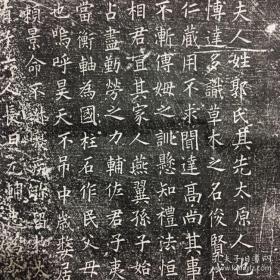 夫人姓郭氏其先太原人
博達多識草木之名俊賢
仁葳用不求聞達高尚其事
不漸傅姆之訓懸知禮法恒
相君宜其家人燕翼孫子始
占盡勤勞之力輔佐君子夷
當衡軸為國柱石作民父母
也嗚呼昊天不吊中歲嫠居
賴景命不
有子六人長曰元輔